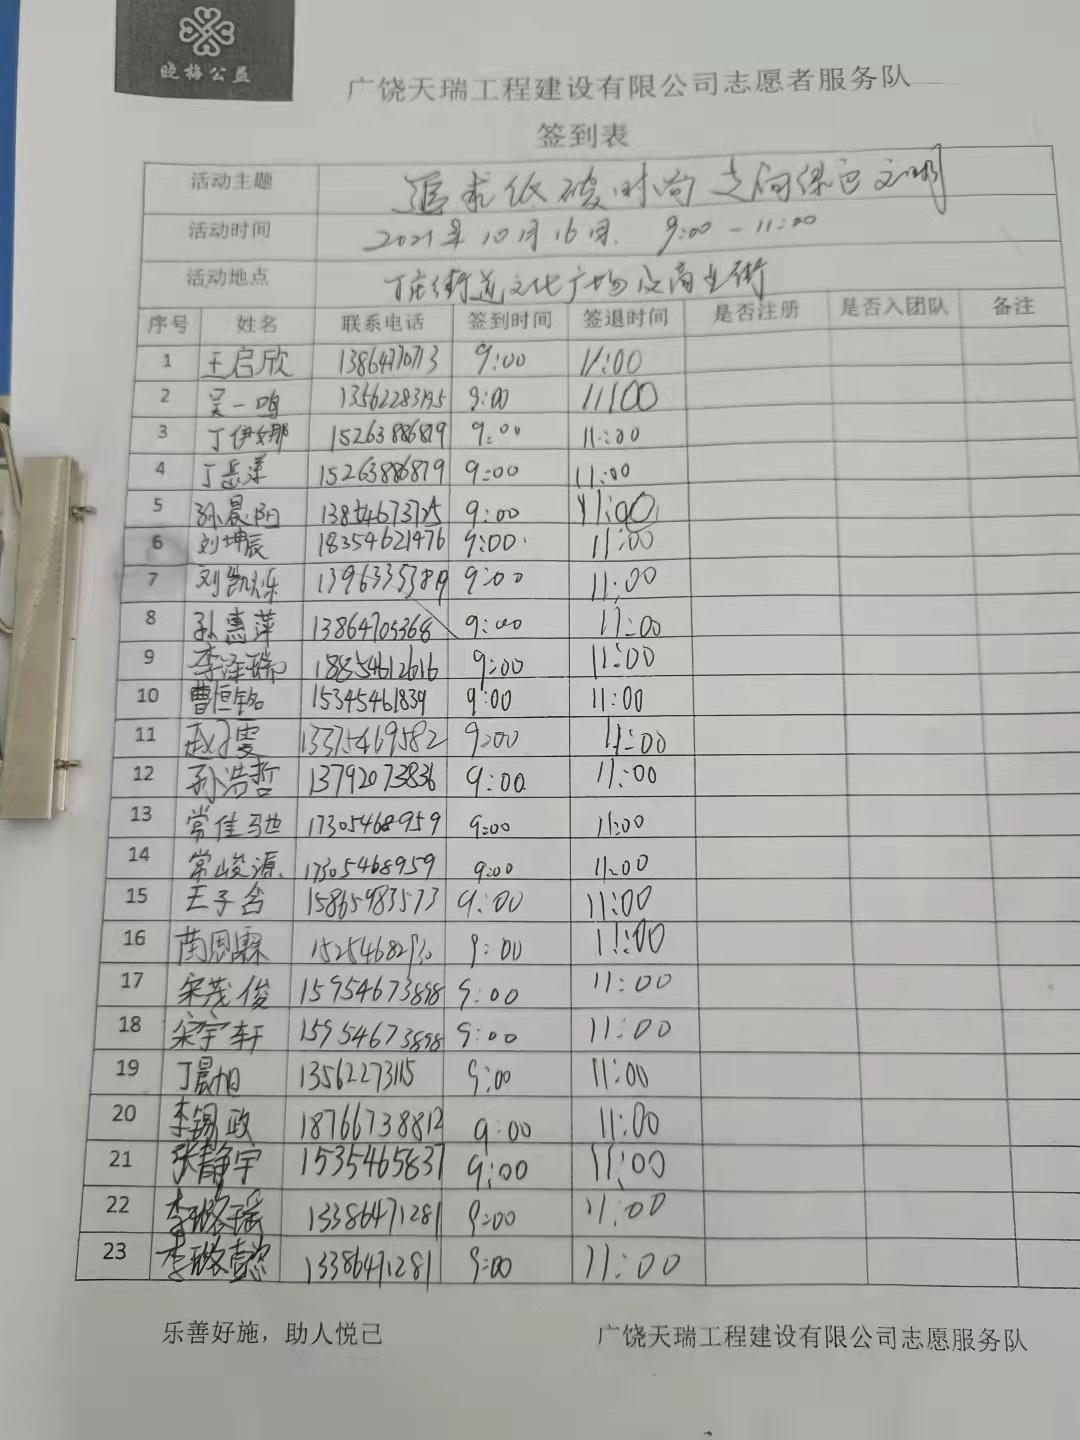 晓梅公益
广饶天瑞工程建设有限公司志愿者服务队
签到表
活动主题 追求低碳时尚 走向绿色文明
活动时间 2021年10月16日. 9:00-11:00
活动地点 丁庄街道文化广场及商业街
序号 姓名 联系电话 签到时间 签退时间 是否注册 是否入团队 备注
1 王启欣 13864770713 9:00 11:00
2 吴一鸣 9:00 11:00
3 丁伊娜 15263886879 9:00 11:00
4 丁岳萍 15263886879 9:00 11:00
5 孙晨阳 9:00 11:00
6 刘坤辰 18354621476 9:00 11:00
7 刘凯烁 9:00 11:00
8 孙惠萍 13864705368 9:00 11:00
9 李泽瑞 18854612616 9:00 11:00
10 曹恒铭 15345461839 9:00 11:00
11 赵子雯 13375469582 9:00 11:00
12 孙浩哲 13792073836 9:00 11:00
13 常佳驰 17305468959 9:00 11:00
14 常峻源 17305468959 9:00 11:00
15 王子含 15865983573 9:00 11:00
16 9:00 11:00
17 宋茂俊 15954673898 9:00 11:00
18 宋宇轩 15954673898 9:00 11:00
19 丁晨旭 13562273115 9:00 11:00
20 李锡政 18766738812 9:00 11:00
21 张静宇 1535465837 9:00 11:00
22 李璐瑶 13386471281 9:00 11:00
23 李璐懿 13386471281 9:00 11:00
乐善好施，助人悦己 广饶天瑞工程建设有限公司志愿服务队